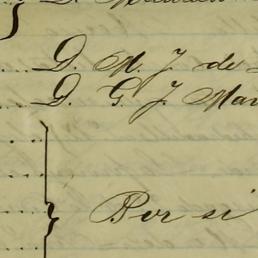 D. M. J. de
D. G. J. Mar
Por si